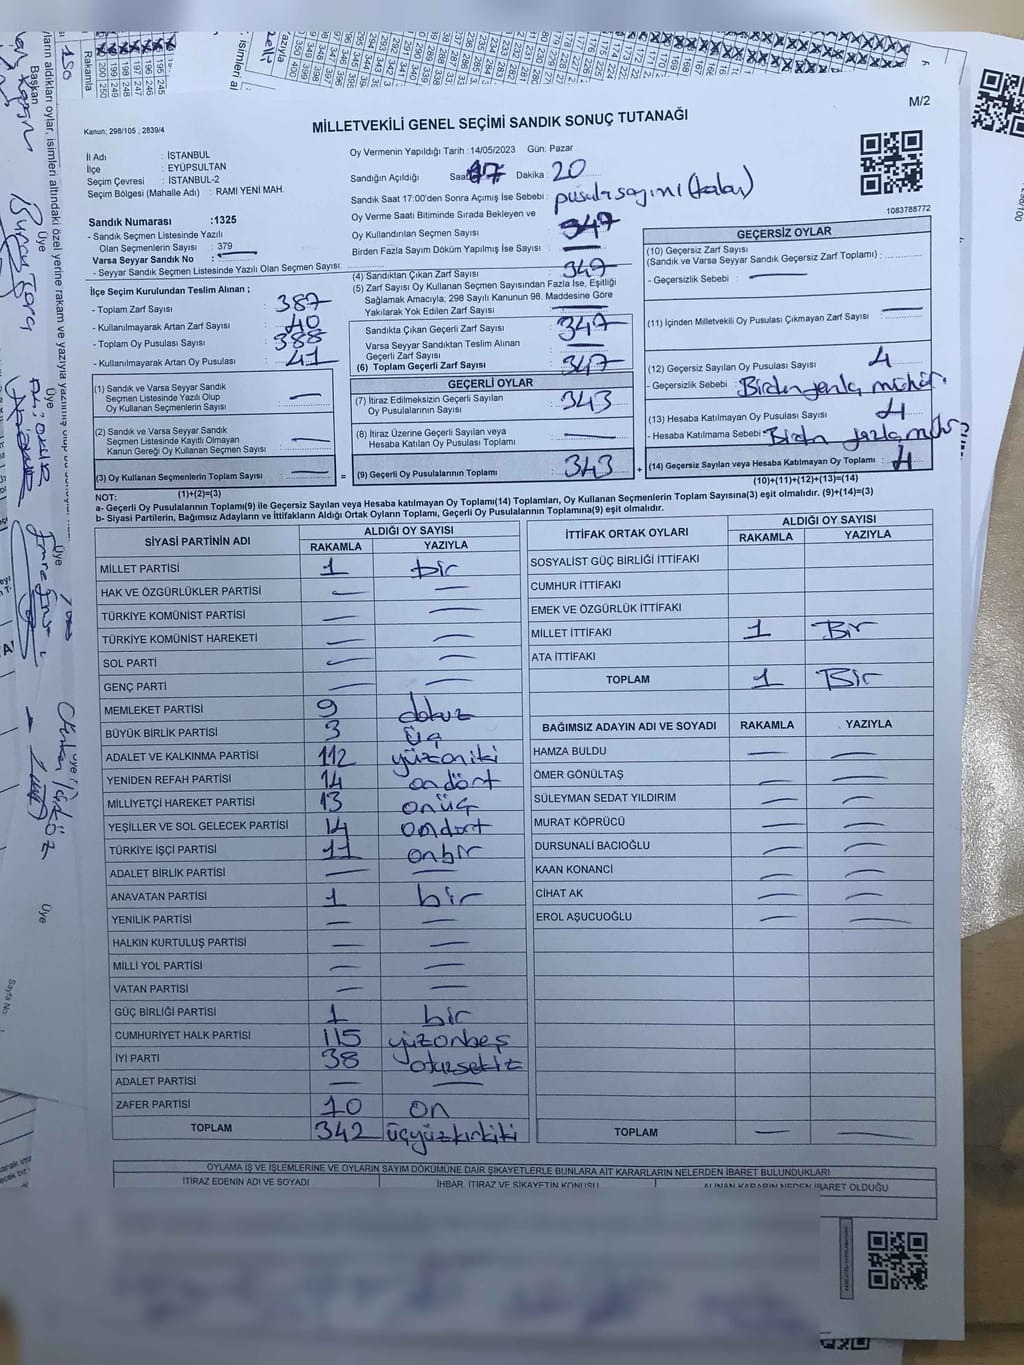 M/2
Kanun; 298/105 , 2839/4
MİLLETVEKİLİ GENEL SEÇİMİ SANDIK SONUÇ TUTANAĞI
İl Adı : İSTANBUL
İlçe : EYÜPSULTAN
Seçim Çevresi : İSTANBUL-2
Seçim Bölgesi (Mahalle Adı) : RAMİ YENİ MAH.
Sandık Numarası :1325
- Sandık Seçmen Listesinde Yazılı
Olan Seçmenlerin Sayısı : 379
Varsa Seyyar Sandık No :
- Seyyar Sandık Seçmen Listesinde Yazılı Olan Seçmen Sayısı:
Oy Vermenin Yapıldığı Tarih :14/05/2023 Gün: Pazar
Sandığın Açıldığı Saat 17 Dakika : 20
Sandık Saat 17:00'den Sonra Açımış İse Sebebi : pusula sayımı
Oy Verme Saati Bitiminde Sırada Bekleyen ve
Oy Kullandırılan Seçmen Sayısı : 347
Birden Fazla Sayım Döküm Yapılmış İse Sayısı :
1083788772
İlçe Seçim Kurulundan Teslim Alınan ;
- Toplam Zarf Sayısı : 387
- Kullanılmayarak Artan Zarf Sayısı : 40
- Toplam Oy Pusulası Sayısı : 388
- Kullanılmayarak Artan Oy Pusulası : 41
(1) Sandık ve Varsa Seyyar Sandık
Seçmen Listesinde Yazılı Olup
Oy Kullanan Seçmenlerin Sayısı : —
(2) Sandık ve Varsa Seyyar Sandık
Seçmen Listesinde Kayıtlı Olmayan
Kanun Gereği Oy Kullanan Seçmen Sayısı : —
(3) Oy Kullanan Seçmenlerin Toplam Sayısı : —
(1)+(2)=(3)
(4) Sandıktan Çıkan Zarf Sayısı : 347
(5) Zarf Sayısı Oy Kullanan Seçmen Sayısından Fazla İse, Eşitliği
Sağlamak Amacıyla; 298 Sayılı Kanunun 98. Maddesine Göre
Yakılarak Yok Edilen Zarf Sayısı : —
Sandıkta Çıkan Geçerli Zarf Sayısı : 347
Varsa Seyyar Sandıktan Teslim Alınan
Geçerli Zarf Sayısı : —
(6) Toplam Geçerli Zarf Sayısı : 347
GEÇERLİ OYLAR
(7) İtiraz Edilmeksizin Geçerli Sayılan
Oy Pusulalarının Sayısı : 343
(8) İtiraz Üzerine Geçerli Sayılan veya
Hesaba Katılan Oy Pusulası Toplamı : —
= (9) Geçerli Oy Pusulalarının Toplamı : 343 +
GEÇERSİZ OYLAR
(10) Geçersiz Zarf Sayısı
(Sandık ve Varsa Seyyar Sandık Geçersiz Zarf Toplamı) :
- Geçersizlik Sebebi : —
(11) İçinden Milletvekili Oy Pusulası Çıkmayan Zarf Sayısı : —
(12) Geçersiz Sayılan Oy Pusulası Sayısı : 4
- Geçersizlik Sebebi : Birden fazla mühür.
(13) Hesaba Katılmayan Oy Pusulası Sayısı : 4
- Hesaba Katılmama Sebebi: Birden fazla mühür
(14) Geçersiz Sayılan veya Hesaba Katılmayan Oy Toplamı : 4
(10)+(11)+(12)+(13)=(14)
NOT:
a- Geçerli Oy Pusulalarının Toplamı(9) ile Geçersiz Sayılan veya Hesaba katılmayan Oy Toplamı(14) Toplamları, Oy Kullanan Seçmenlerin Toplam Sayısına(3) eşit olmalıdır. (9)+(14)=(3)
b- Siyasi Partilerin, Bağımsız Adayların ve İttifakların Aldığı Ortak Oyların Toplamı, Geçerli Oy Pusulalarının Toplamına(9) eşit olmalıdır.
SİYASİ PARTİNİN ADI
ALDIĞI OY SAYISI
RAKAMLA YAZIYLA
MİLLET PARTİSİ 1 bir
HAK VE ÖZGÜRLÜKLER PARTİSİ — —
TÜRKİYE KOMÜNİST PARTİSİ — —
TÜRKİYE KOMÜNİST HAREKETİ — —
SOL PARTİ — —
GENÇ PARTİ — —
MEMLEKET PARTİSİ 9 dokuz
BÜYÜK BİRLİK PARTİSİ 3 üç
ADALET VE KALKINMA PARTİSİ 112 yüzoniki
YENİDEN REFAH PARTİSİ 14 ondört
MİLLİYETÇİ HAREKET PARTİSİ 13 onüç
YEŞİLLER VE SOL GELECEK PARTİSİ 14 ondört
TÜRKİYE İŞÇİ PARTİSİ 11 onbir
ADALET BİRLİK PARTİSİ — —
ANAVATAN PARTİSİ 1 bir
YENİLİK PARTİSİ — —
HALKIN KURTULUŞ PARTİSİ — —
MİLLİ YOL PARTİSİ — —
VATAN PARTİSİ — —
GÜÇ BİRLİĞİ PARTİSİ 1 bir
CUMHURİYET HALK PARTİSİ 115 yüzonbeş
İYİ PARTİ 38 otuzsekiz
ADALET PARTİSİ — —
ZAFER PARTİSİ 10 on
TOPLAM 342 üçyüzkırkiki
İTTİFAK ORTAK OYLARI
ALDIĞI OY SAYISI
RAKAMLA YAZIYLA
SOSYALİST GÜÇ BİRLİĞİ İTTİFAKI
CUMHUR İTTİFAKI
EMEK VE ÖZGÜRLÜK İTTİFAKI
MİLLET İTTİFAKI 1 Bir
ATA İTTİFAKI
TOPLAM 1 Bir
BAĞIMSIZ ADAYIN ADI VE SOYADI RAKAMLA YAZIYLA
HAMZA BULDU — —
ÖMER GÖNÜLTAŞ — —
SÜLEYMAN SEDAT YILDIRIM — —
MURAT KÖPRÜCÜ — —
DURSUNALİ BACIOĞLU — —
KAAN KONANCİ — —
CİHAT AK — —
EROL AŞUCUOĞLU — —
TOPLAM — —
OYLAMA İŞ VE İŞLEMLERİNE VE OYLARIN SAYIM DÖKÜMÜNE DAİR ŞİKAYETLERLE BUNLARA AİT KARARLARIN NELERDEN İBARET BULUNDUKLARI
İTİRAZ EDENİN ADI VE SOYADI
İHBAR, İTİRAZ VE ŞİKAYETİN KONUSU
ALINAN KARARIN NEDEN İBARET OLDUĞU
Başkan
Üye
Üye
Üye
Üye
Üye
Sayfa No:
Rakamla
150